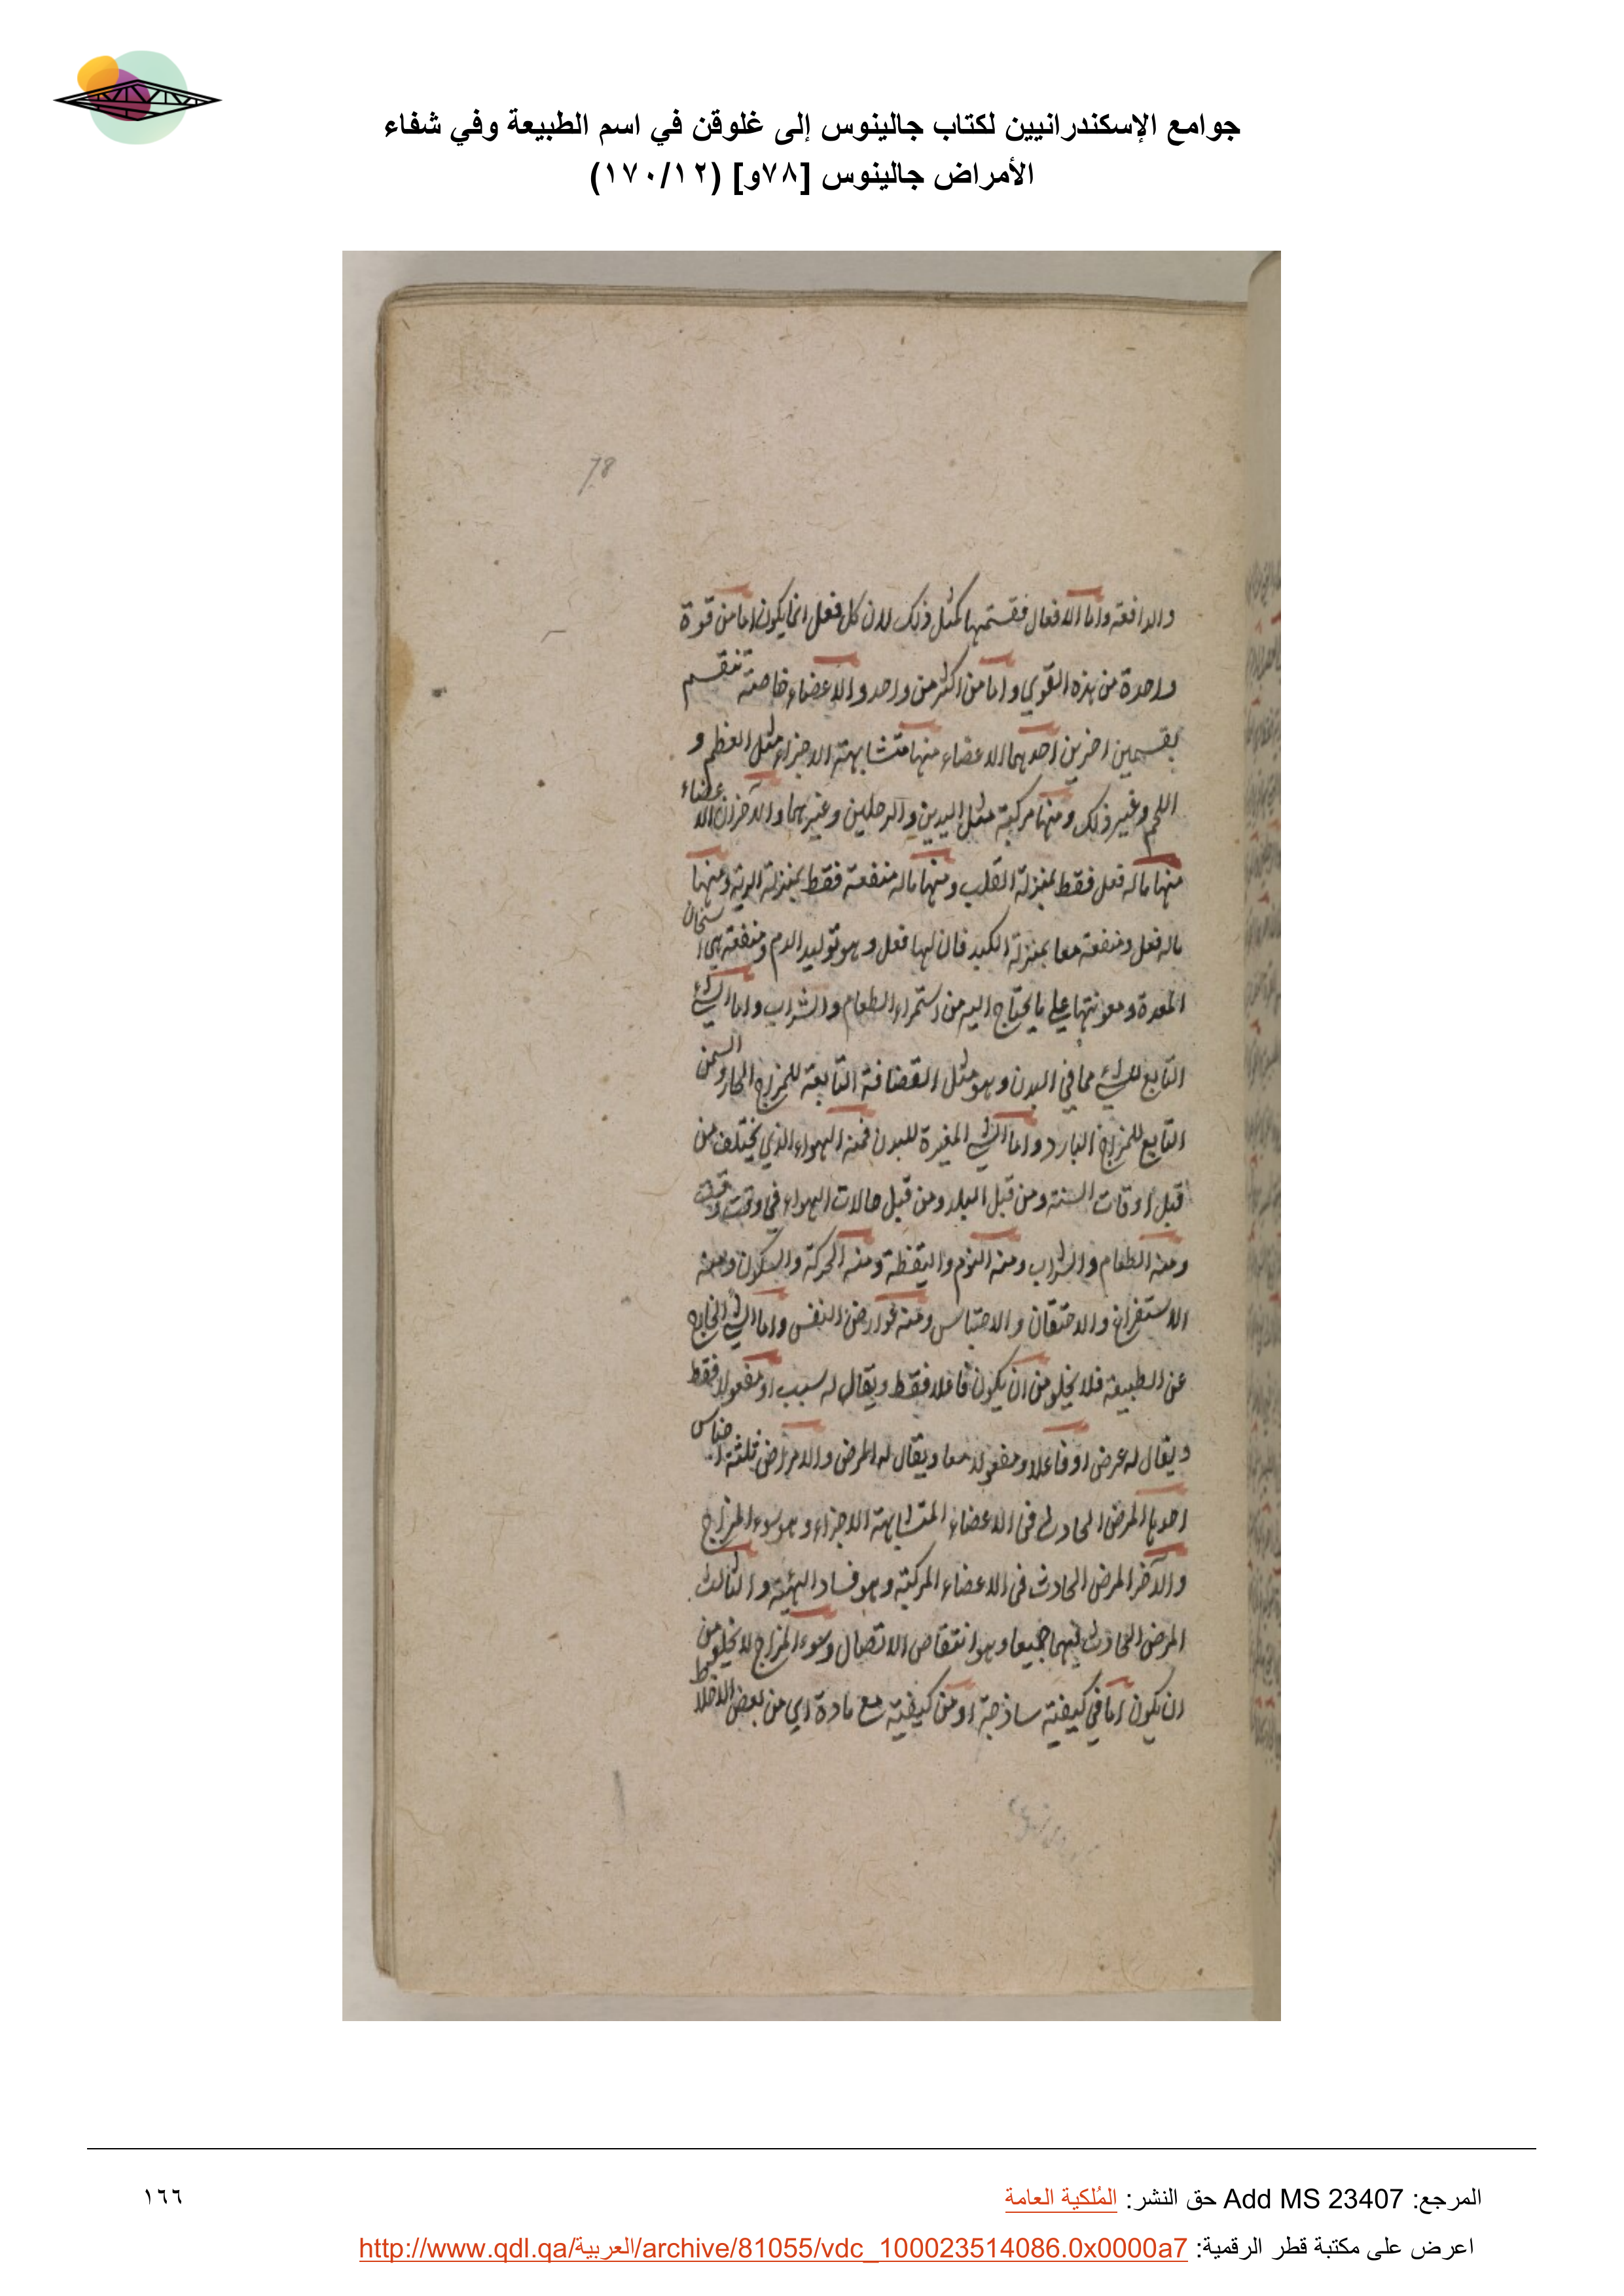 جوامع الإسكندرانيين لكتاب جالينوس إلى غلوقن في اسم الطبيعة وفي شفاء
الأمراض جالينوس [٧٨و] (١٧٠/١٢)
78
والدافعة واما الافعال فقسمتها كمثل ذلك لان كل فعل انما يكون اما من قوة
واحدة من هذه القوي واما من اكثر من واحد والاعضاء خاصة تنقسم
بقسمين اخرين احديهما الاعضاء منها متشابهة الاجزاء مثل العظم و
اللحم وغير ذلك ومنها مركبة مثل اليدين والرجلين وغيرهما والآخر ان الاعضاء
منها ماله فعل فقط بمنزلة القلب ومنها ماله منفعة فقط بمنزلة الرية ومنها
ماله فعل ومنفعة معا بمنزلة الكبد فان لها فعل وهو توليد الدم ومنفعة هي اسخان
المعدة ومعونتها على ما يحتاج اليه من استمراء الطعام والشراب واما الشئ
التابع للشئ مما في البدن وهو مثل القضافة التابعة للمزاج الحار والسمن
التابع للمزاج البارد واما الشئ المغيرة للبدن فمنه الهواء الذي يختلف من
قبل اوقات السنة ومن قبل البلد ومن قبل حالات الهواء في وقت وقت
ومنه الطعام والشراب ومنه النوم واليقظة ومنه الحركة والسكون ومنه
الاستفراغ والاحتقان والاحتباس ومنه عوارض النفس واما الشئ الخارج
عن الطبيعة فلا يخلو من ان يكون فاعلا فقط ويقال له سبب او مفعولا فقط
ويقال له عرض او فاعلا ومفعولا معا ويقال له المرض والامراض ثلثة اجناس
احدها المرض الحادث في الاعضاء المتشابهة الاجزاء وهو سوء المزاج
والآخر المرض الحادث في الاعضاء المركبة وهو فساد الهيئة والثالث
المرض الحادث فيهما جميعا وهو انتقاص الاتصال وسوء المزاج لا يخلو من
ان يكون اما في كيفية ساذجة او من كيفية مع مادة اي من بعض الاخلاط
المرجع: Add MS 23407 حق النشر: المُلكية العامة
١٦٦
اعرض على مكتبة قطر الرقمية: http://www.qdl.qa/العربية/archive/81055/vdc_100023514086.0x0000a7